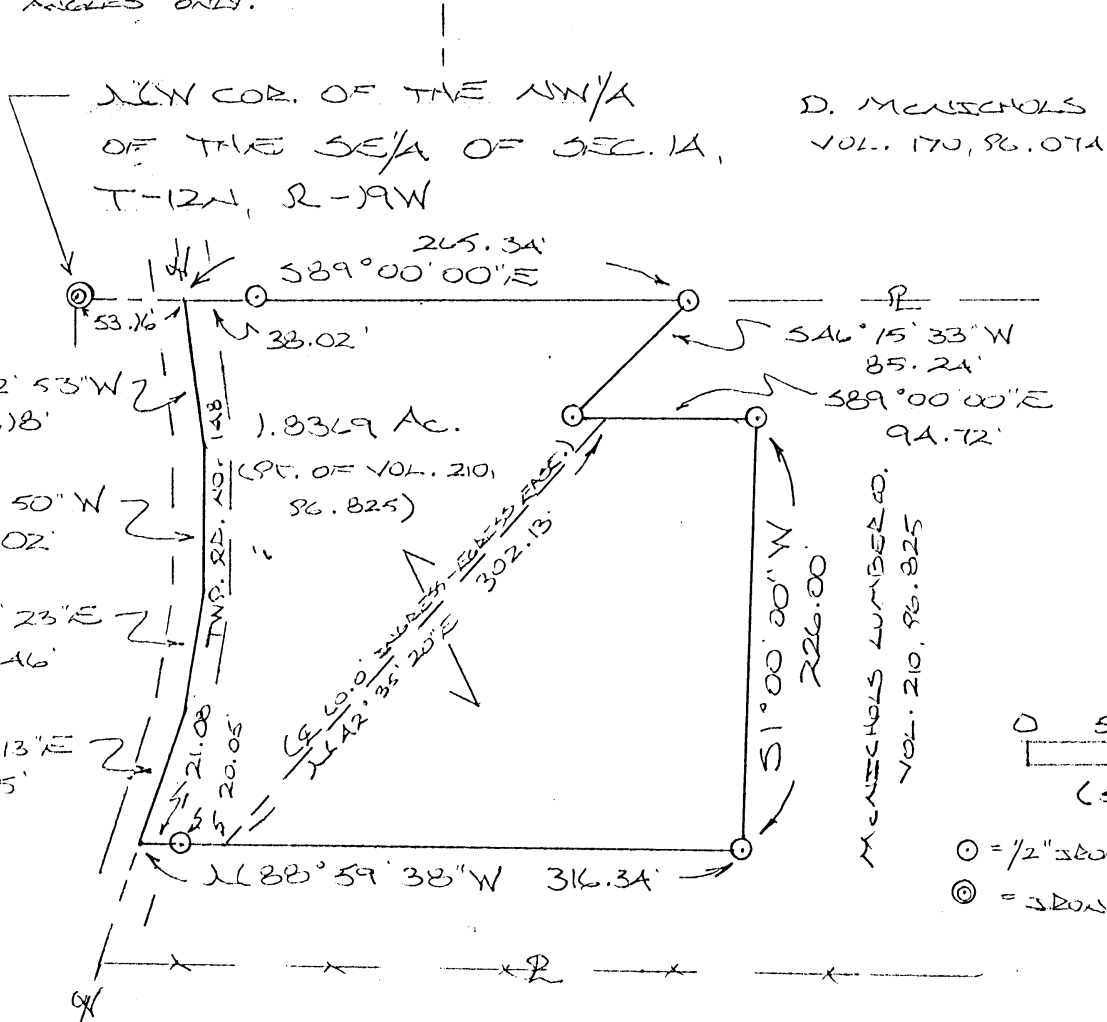 ANGLES ONLY.
NW COR. OF THE NW1/4
OF THE SE1/4 OF SEC. 14,
T-12N, R-19W
D. MCNICHOLS
VOL. 170, PG. 074
265.34'
S89°00'00"E
53.16'
38.02'
S46°15'33"W
85.24'
S89°00'00"E
94.72'
2' 53"W
.18'
1.8369 AC.
(PT. OF VOL. 210,
PG. 825)
TWP. RD. NO. 148
50"W
02'
' 23"E
46'
13"E
5'
21.08'
20.05'
(℄ 60.0' INGRESS-EGRESS EASE.)
N42°35'20"E
302.13'
S1°00'00"W
226.00'
MCNICHOLS LUMBER CO.
VOL. 210, PG. 825
N88°59'38"W 316.34'
0 5
⊙ = 1/2" IRON
◎ = IRON
℄